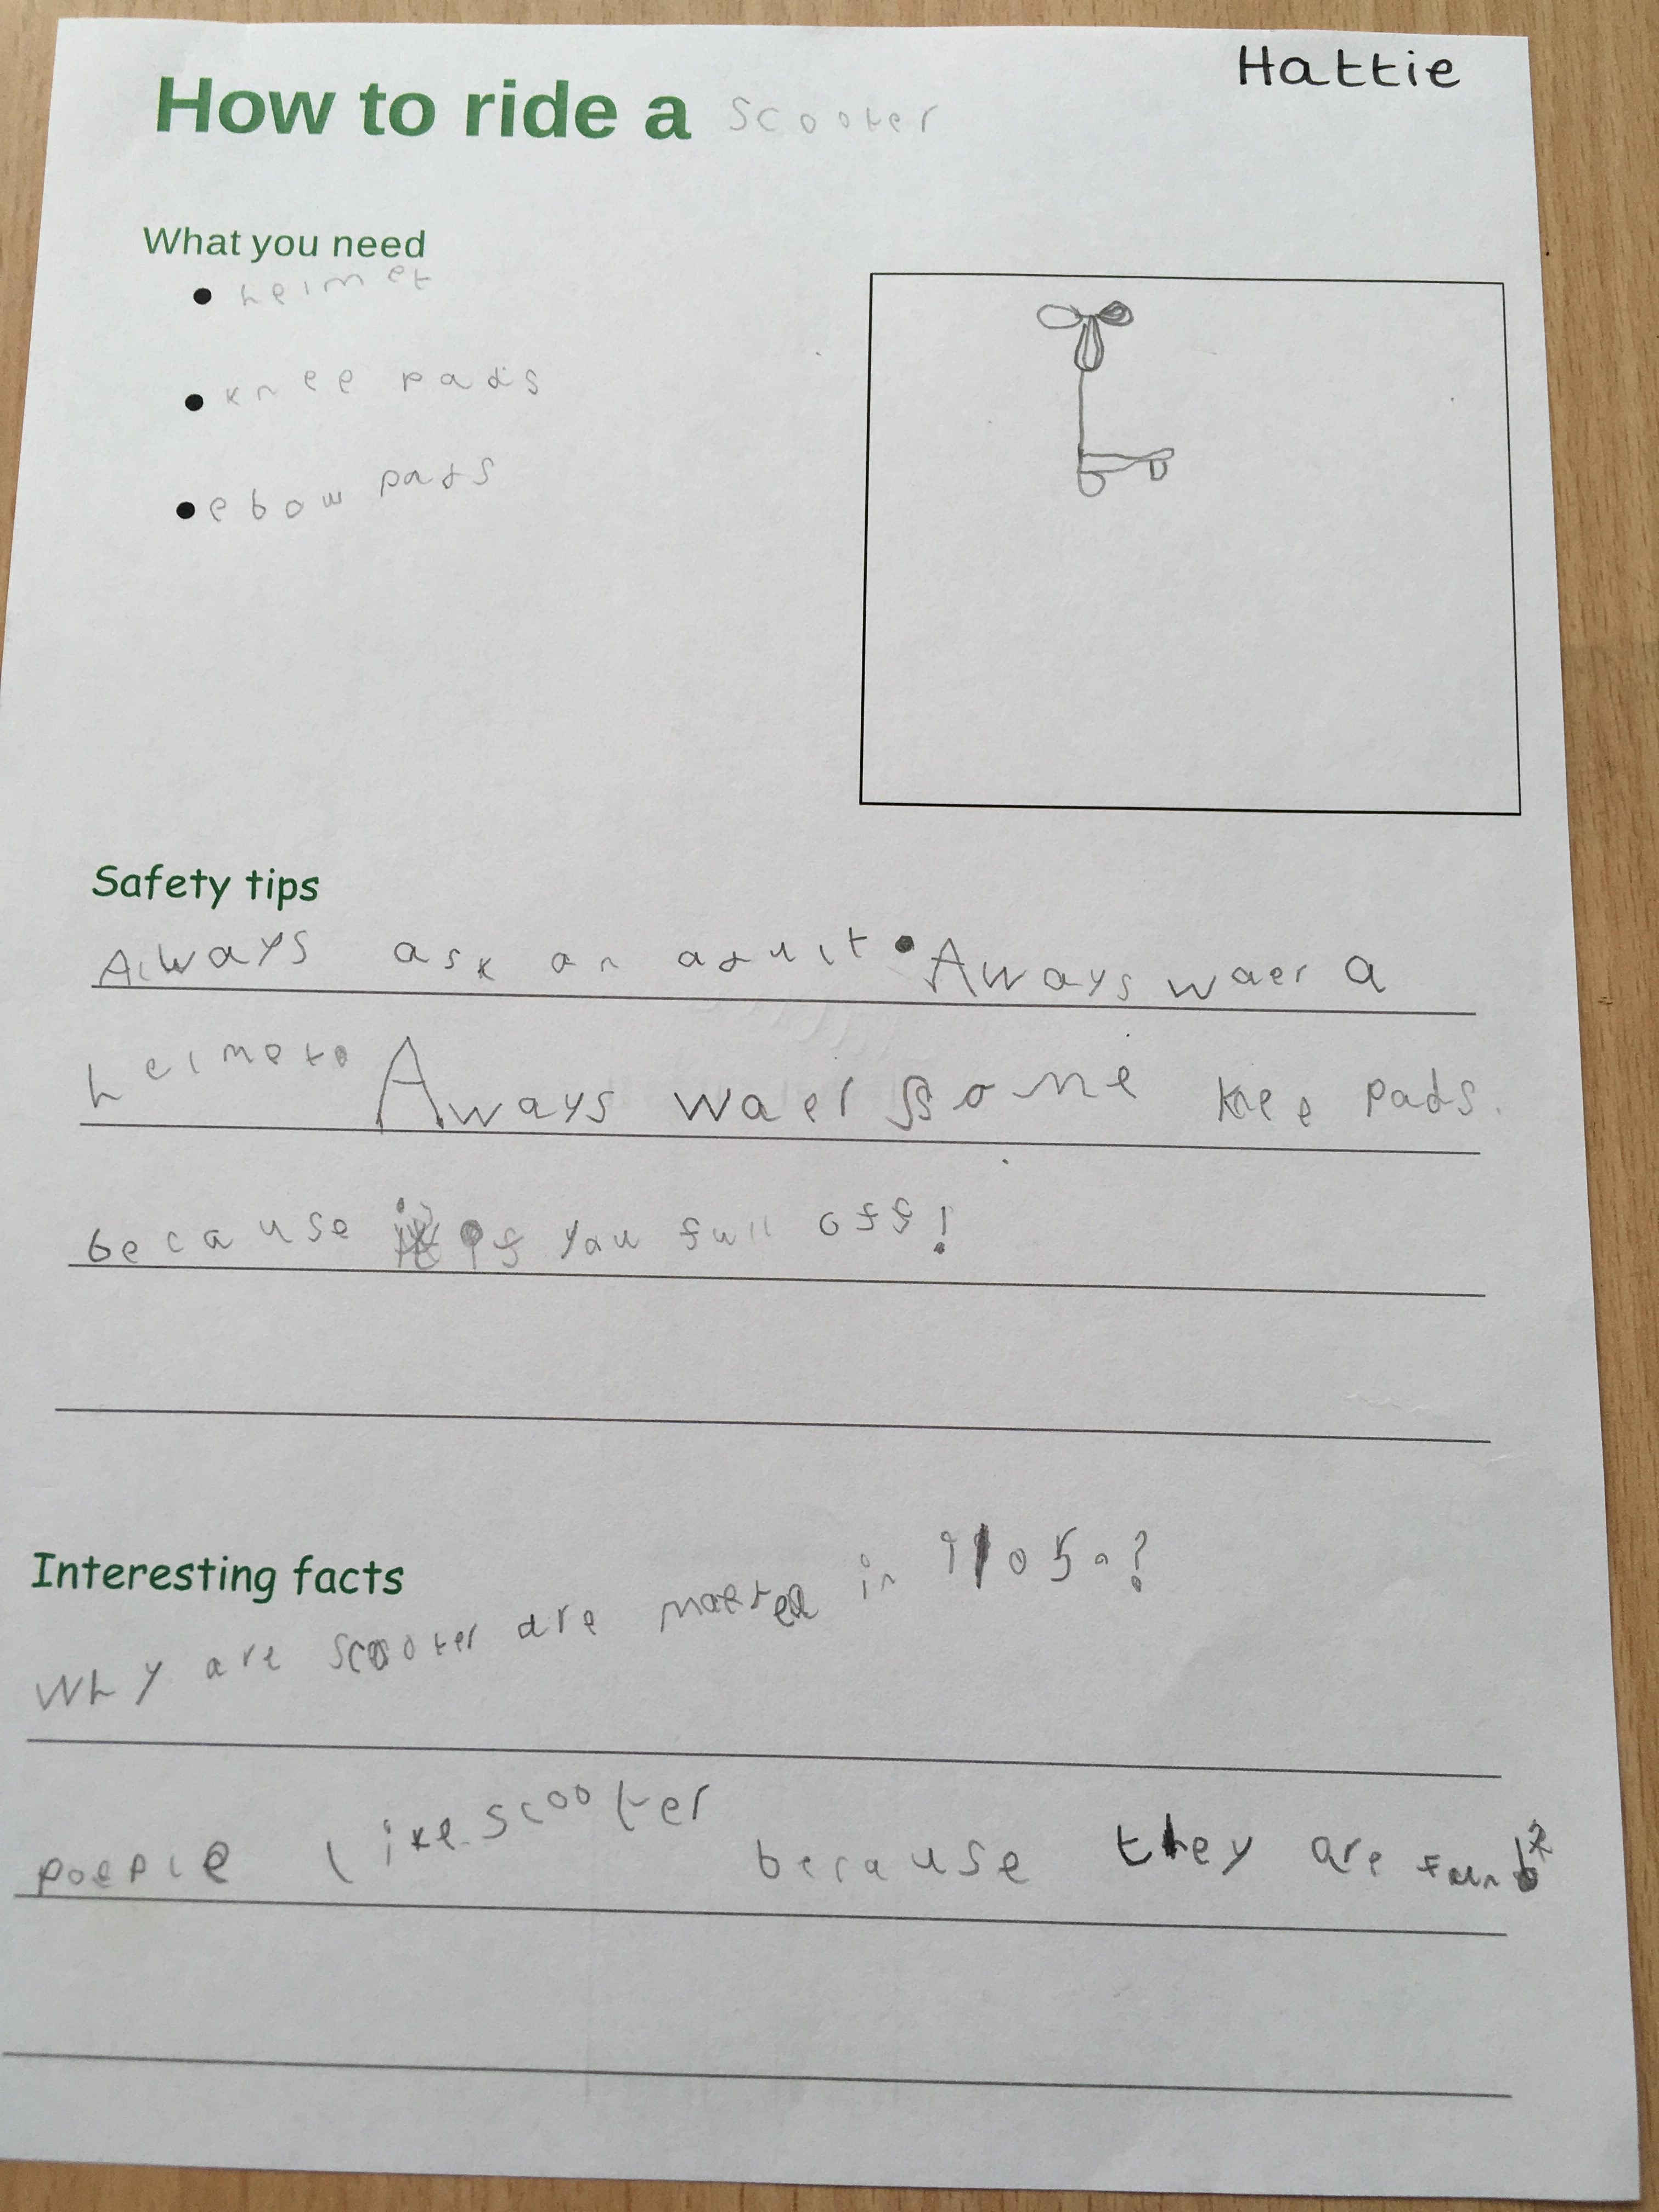 Hattie
How to ride a scooter
What you need
helmet
knee pads
ebow pads
Safety tips
Always ask an adult. Aways waer a
helmet. Aways waer some knee pads.
because if you full off!
Interesting facts
Why are scooter are in
poeple like scooter because they are fun